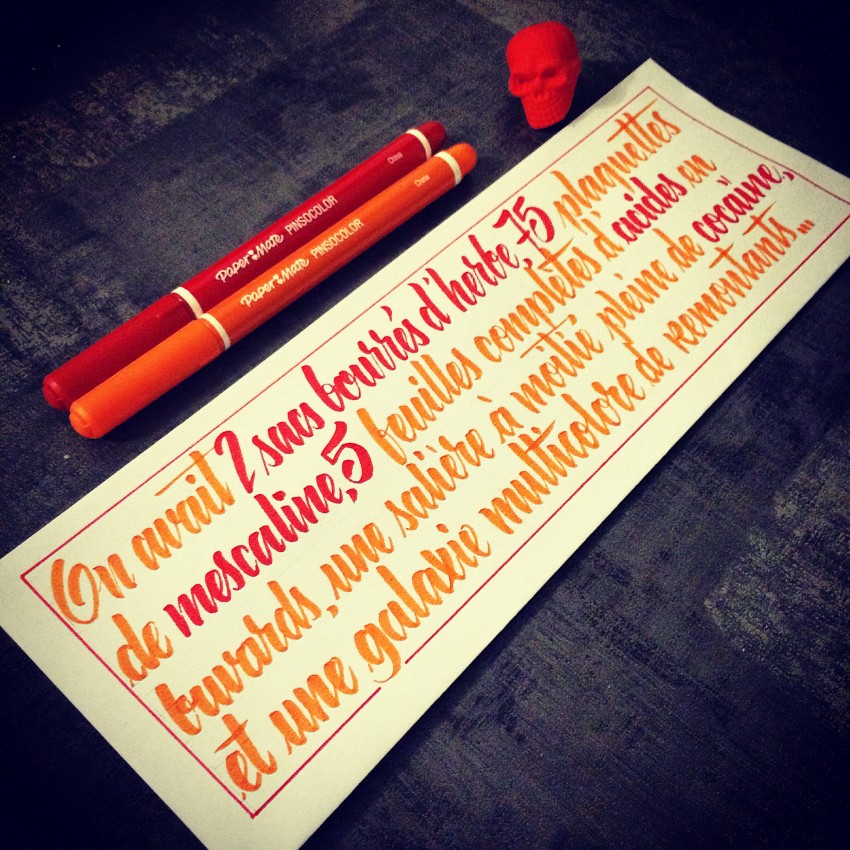 On avait 2 sacs bourrés d'herbe, 75 plaquettes
de mescaline, 5 feuilles complètes d'acides en
buvards, une salière à moitié pleine de cocaïne,
et une galaxie multicolore de remontants...
PAPER MATE PINSOCOLOR China
PAPER MATE PINSOCOLOR China